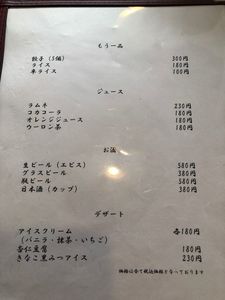 もう一品
餃子（5個） 300円
ライス 180円
半ライス 100円
ジュース
ラムネ 230円
コカコーラ 180円
オレンジジュース 180円
ウーロン茶 180円
お酒
生ビール（エビス） 580円
グラスビール 380円
瓶ビール 580円
日本酒（カップ） 380円
デザート
アイスクリーム 各180円
（バニラ・抹茶・いちご）
杏仁豆腐 180円
きなこ黒みつアイス 230円
価格は全て税込価格となっております